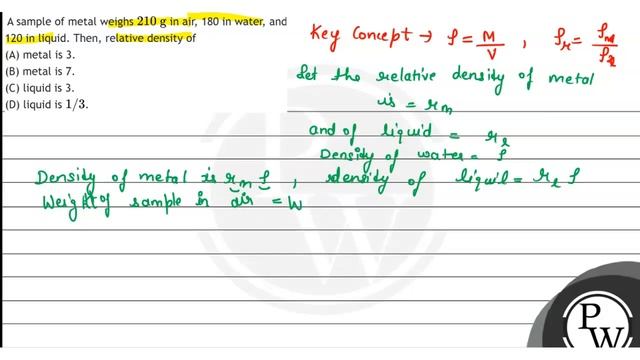 A sample of metal weighs 210 g in air, 180 in water, and
120 in liquid. Then, relative density of
(A) metal is 3.
(B) metal is 7.
(C) liquid is 3.
(D) liquid is 1/3.
Key Concept → ρ = M/V , ρr = ρm/ρl
Let the relative density of metal
is = rm
and of liquid = rl
Density of water = ρ
Density of metal is rm ρ , density of liquid = rl ρ
Weight of sample in air = W
PW